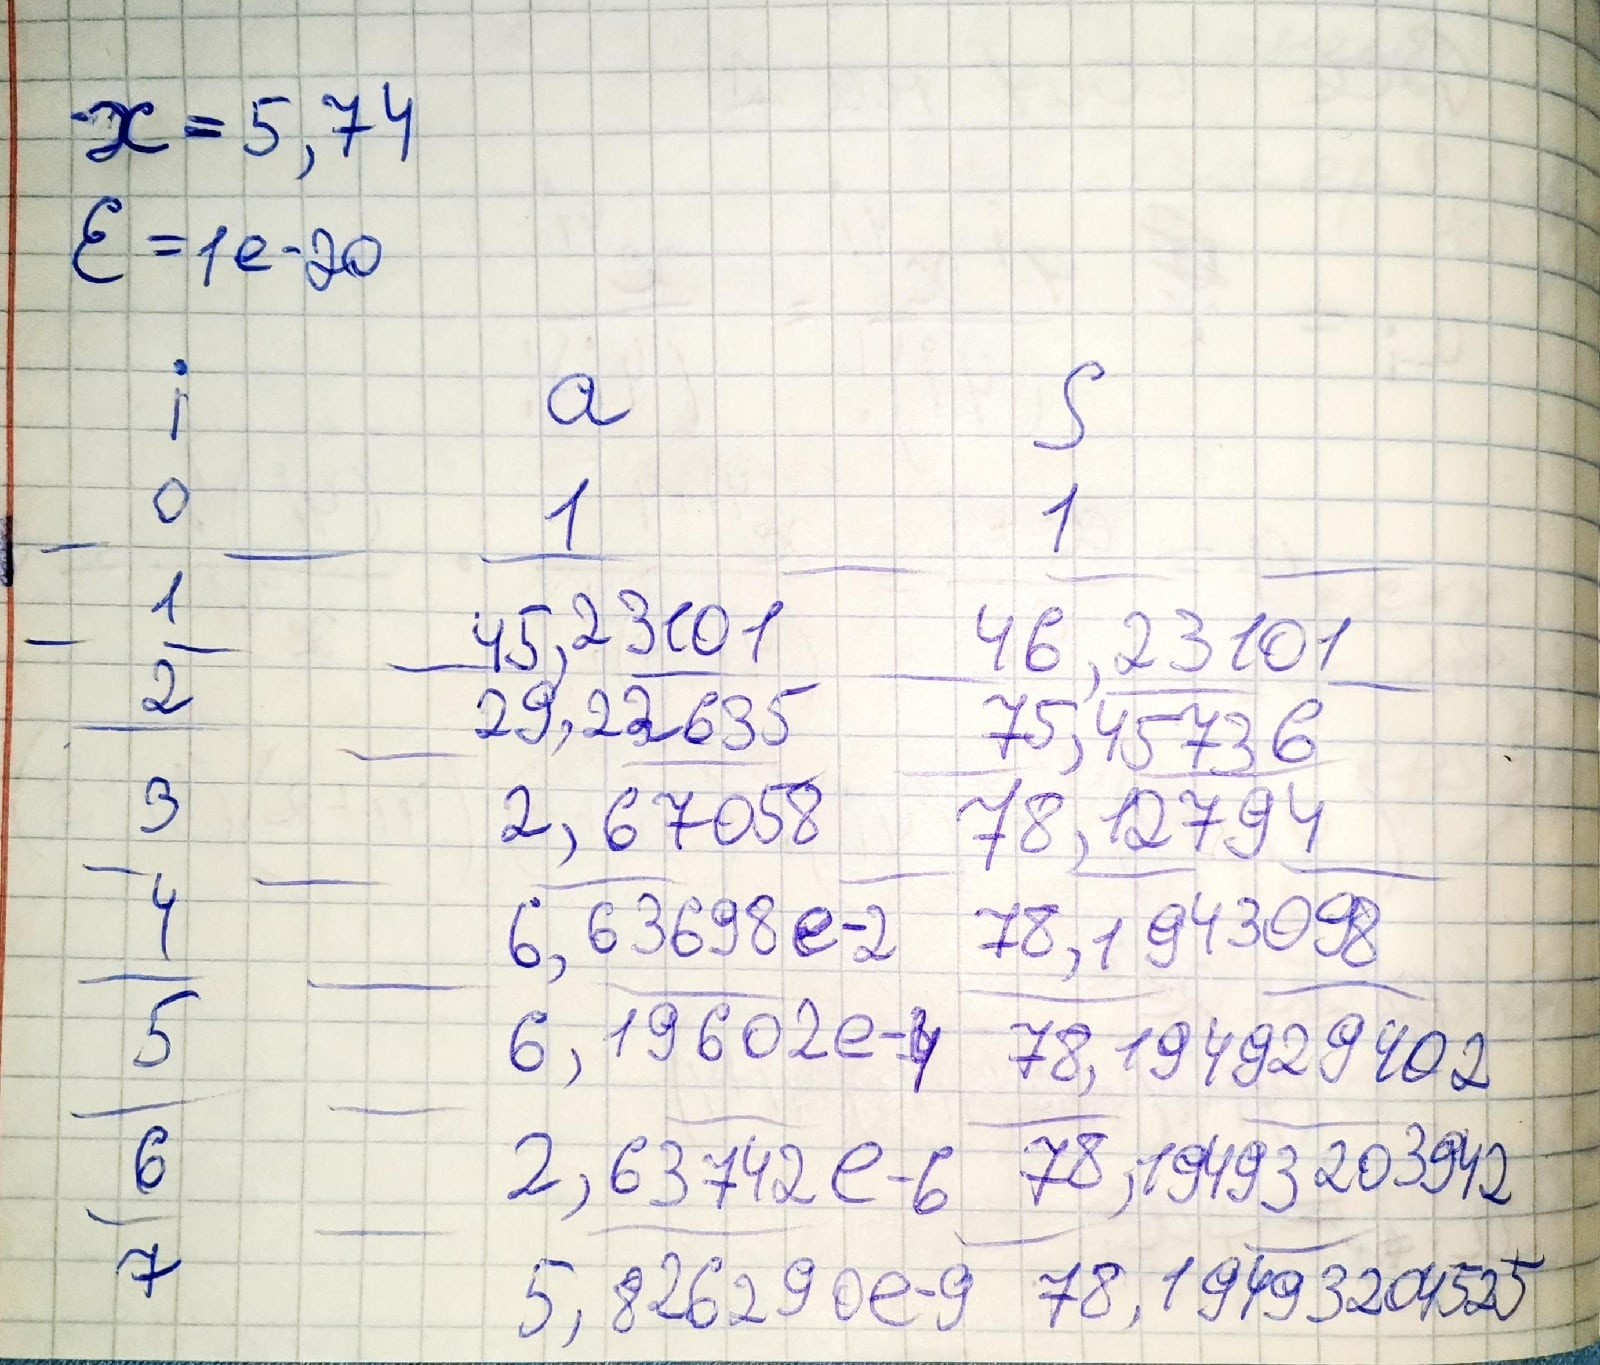 x = 5,74
ε = 1e-20
i a S
0 1 1
1 45,23101 46,23101
2 29,22635 75,45736
3 2,67058 78,12794
4 6,63698e-2 78,1943098
5 6,19602e-4 78,194929402
6 2,63742e-6 78,19493203942
7 5,826290e-9 78,19493204525